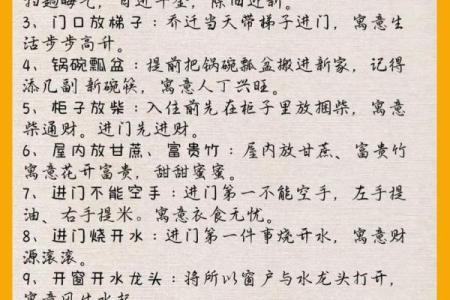 3、门口放梯子：乔迁当天带梯子进门，寓意生
活步步高升。
4、锅碗瓢盆：提前把锅碗瓢盆搬进新家，记得
添几副 新碗筷，寓意人丁兴旺。
5、柜子放柴：入住前先在柜子里放捆柴，寓意
柴通财。进门先进财。
6、屋内放甘蔗、富贵竹：屋内放甘蔗、富贵竹
寓意花开富贵，甜甜蜜蜜。
7、进门不能空手：进门第一不能空手，左手提
油、右手提米。寓意衣食无忧。
8、进门烧开水：进门第一件事烧开水，寓意财
源滚滚。
9、开窗开水龙头：将所以窗户与水龙头打开，
寓意风生水起